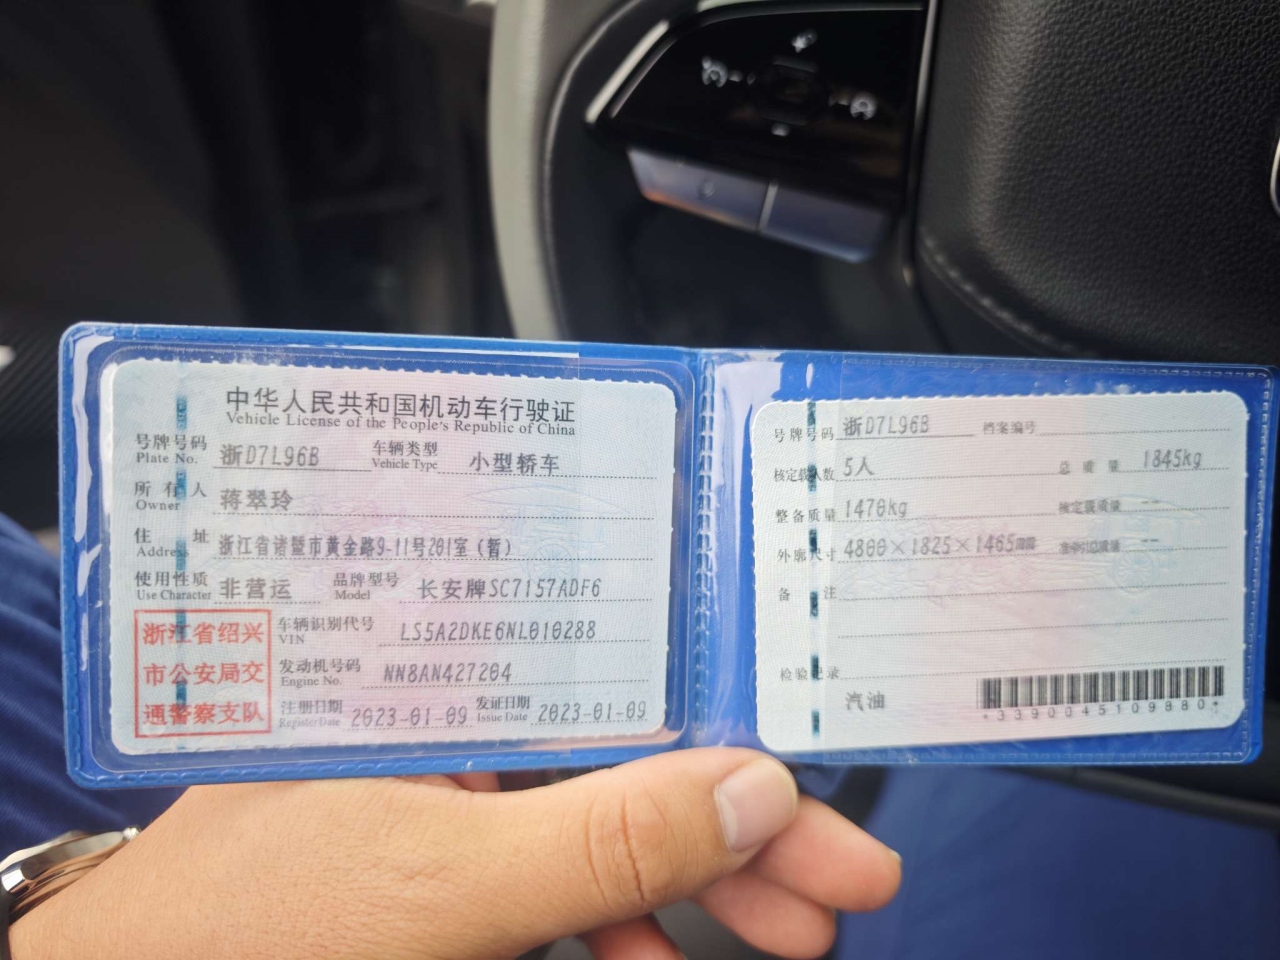 中华人民共和国机动车行驶证
Vehicle License of the People's Republic of China
号牌号码 浙D7L96B 车辆类型 小型轿车
Plate No. Vehicle Type
所有人 蒋翠玲
Owner
住址 浙江省诸暨市黄金路9-11号201室(暂)
Address
使用性质 非营运 品牌型号 长安牌SC7157ADF6
Use Character Model
浙江省绍兴
市公安局交
通警察支队
车辆识别代号 LS5A2DKE6NL010288
VIN
发动机号码 NN8AN427204
Engine No.
注册日期 2023-01-09 发证日期 2023-01-09
Register Date Issue Date
号牌号码 浙D7L96B 档案编号
核定载人数 5人 总质量 1845kg
整备质量 1470kg 核定载质量 --
外廓尺寸 4800×1825×1465 准牵引总质量 --
备注
检验记录
汽油
*3390045109880*